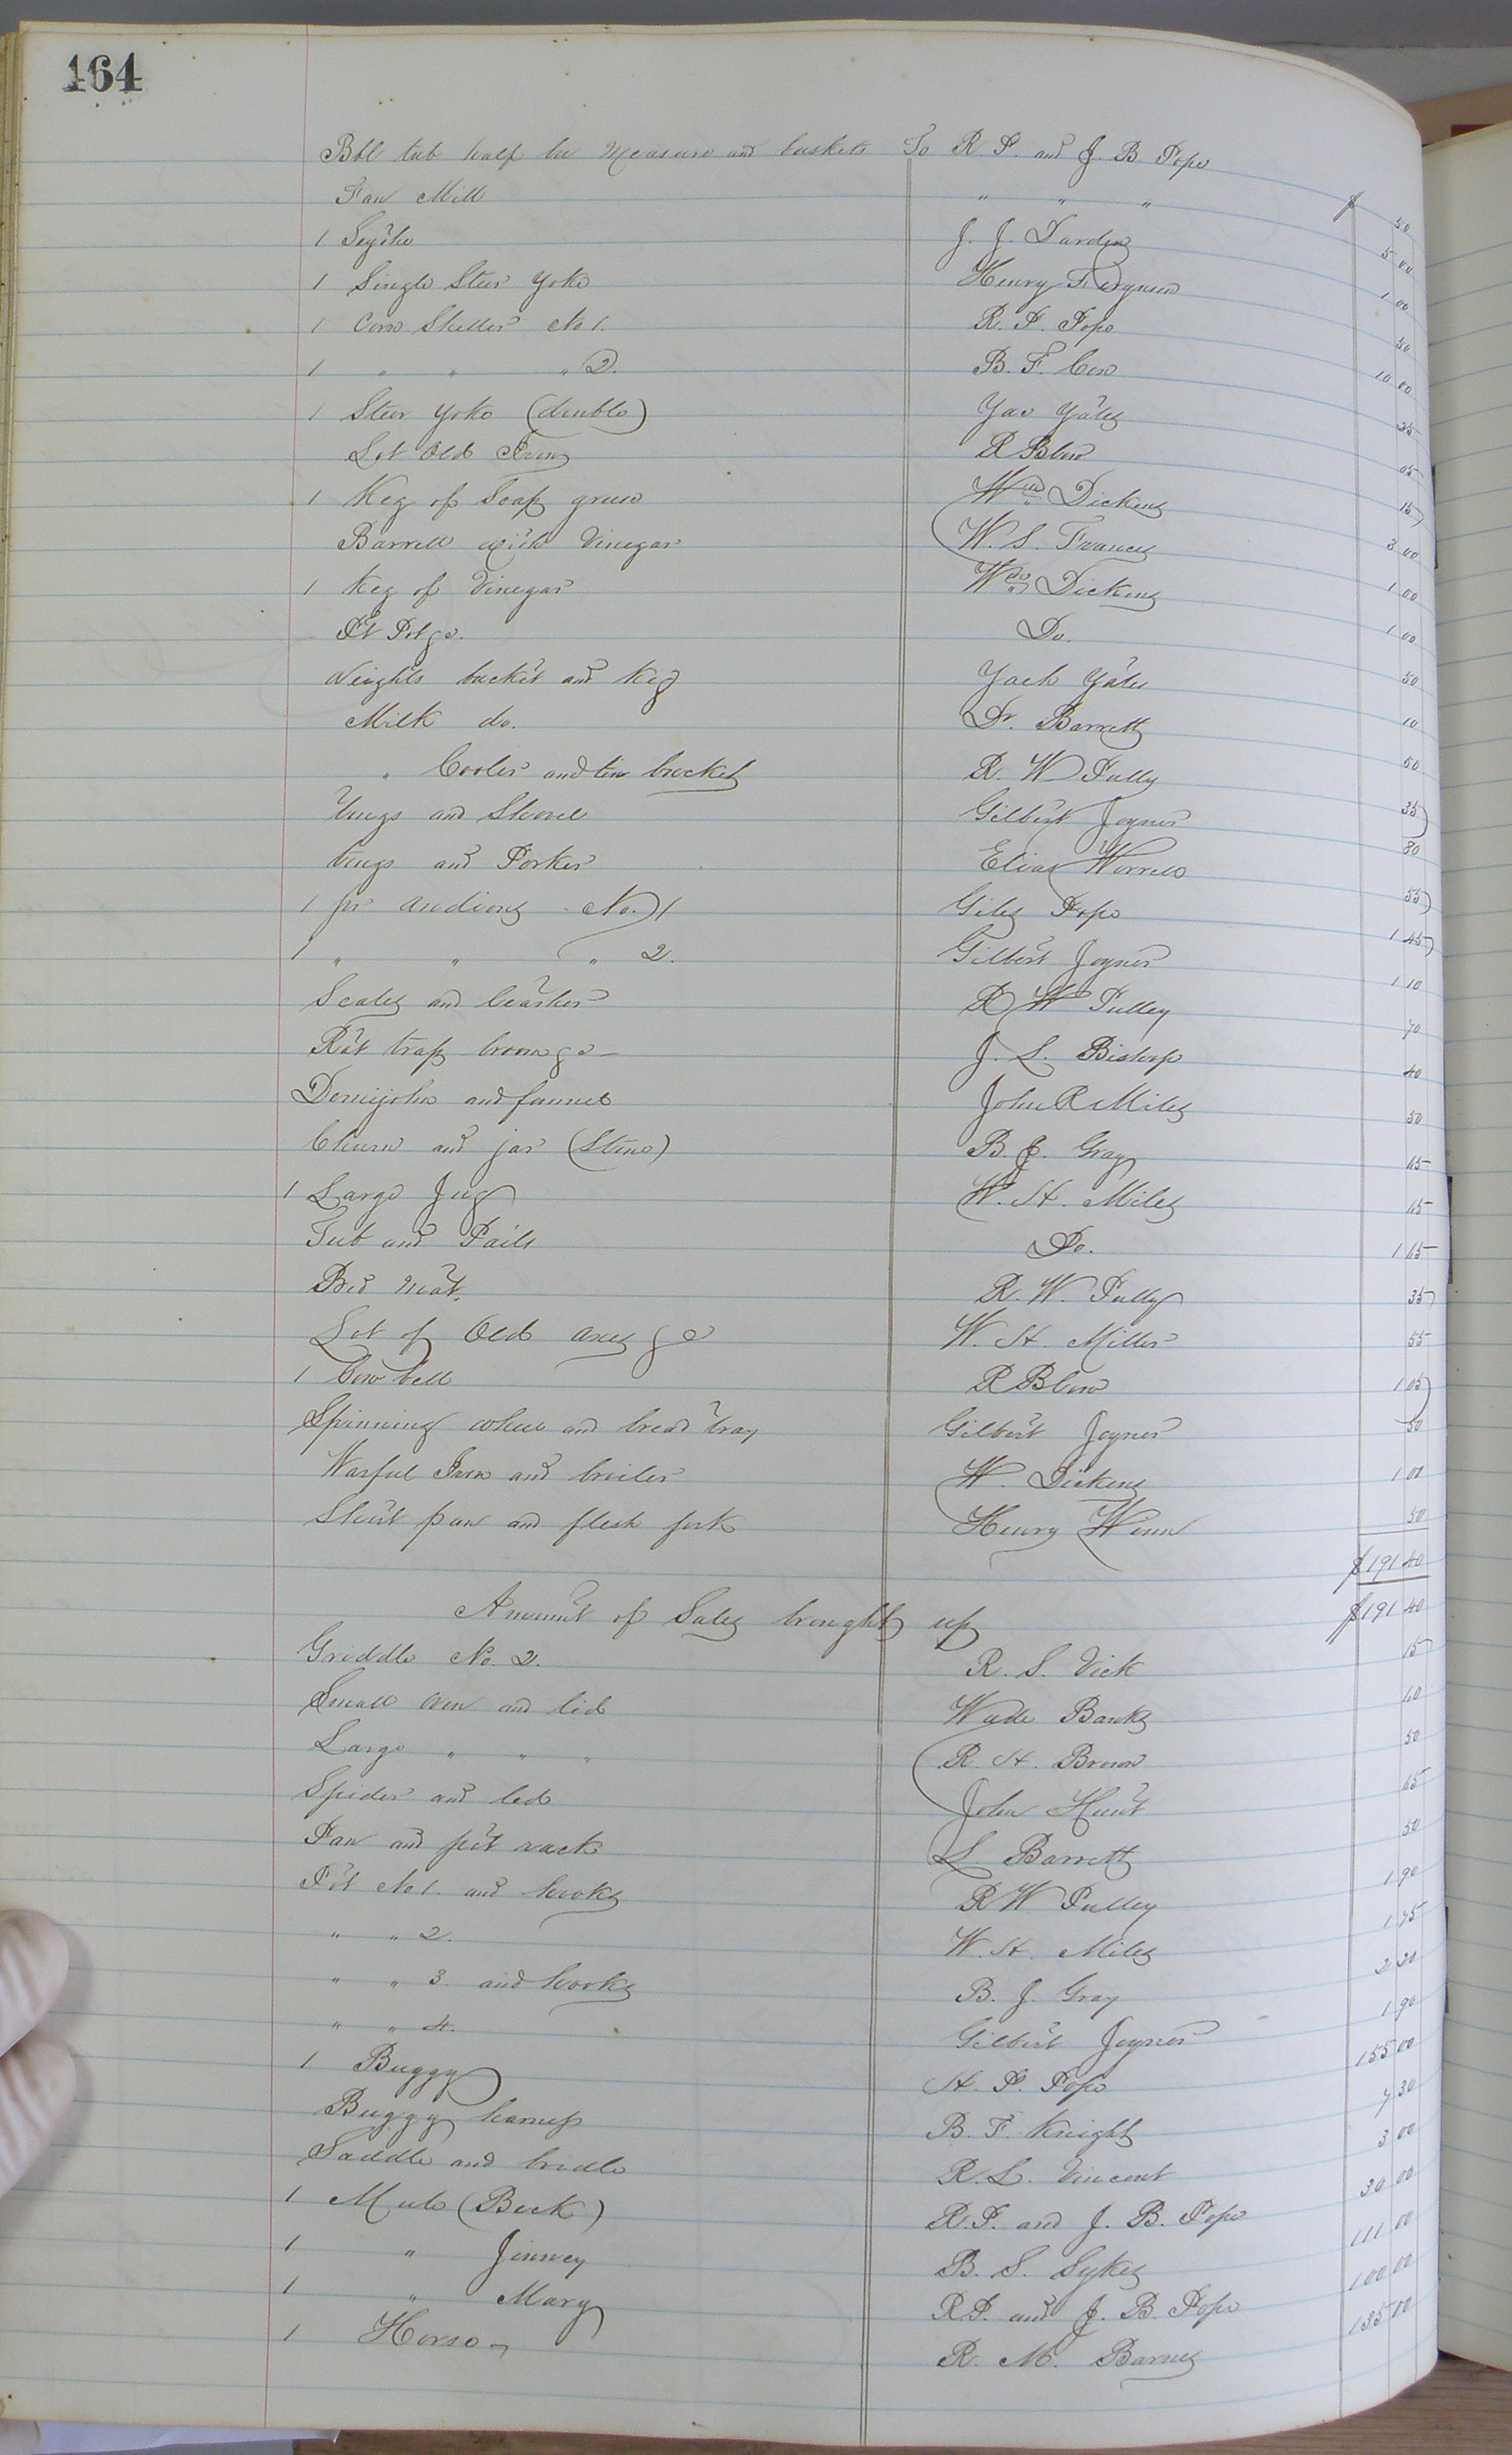 164
Bbl tub half bu Measure and baskets To R. P. and J. B Pope $ 50
Fan Mill " " " 5 00
1 Scythe J. J. Darden 1 00
1 Single Steer Yoke Henry Ferguson 50
1 Corn Sheller No 1. R. P. Pope 10 00
1 " " " 2. B. F. Cow 25
1 Steer Yoke (double) Jac Yates 05
Lot Old Irons R Blow 15
1 Keg of Soap grease Wm Dickens 3 00
Barrell with Vinegar W. S. Francis 1 00
1 Keg of Vinegar Wm Dickens 1 00
Do. 50
Weights bucket and Keg Jack Yates 10
Milk do. Dr. Barrett 50
" Cooler and tin bucket R. W Pully 35
tongs and Shovel Gilbert Joyner 80
tongs and Porker Elias Worrell 55
1 pr andions No. 1 Giles Pope 1 45
1 " " " 2. Gilbert Joyner 1 10
Scales and R W Pulley 70
Rat trap broom &c J. L. Bishop 40
Demijohn and funnel John R Miles 50
Churn and jar (Stone) B. J. Gray 65
1 Large Jug W. H. Miles 65
Tub and Pails Do. 1 65
Bed Mat. R. W. Pully 35
Lot of Old axes &c W. H. Miller 55
1 Cow bell R Blow 1 05
Spinning wheel and bread tray Gilbert Joyner 50
Warful Iron and broiler W. Dickens 1 00
pan and flesh fork Henry Winn 50
$191 40
Amount of Sales brought up $191 40
Griddle No. 2. R. S. Vick 15
Small oven and lid Wade Banks 60
Large " " " R. H. Brown 50
Spider and led John Hunt 65
Pan and pot rack L. Barrett 50
Pot No 1. and hooks R W Pulley 1 90
" " 2. W. H. Miles 1 75
" " 3. and hooks B. J. Gray 2 20
" " 4. Gilbert Joyner 1 90
1 Buggy H. P. Pope 155 00
Buggy harness B. F. Knight 7 30
Saddle and bridle R. L. Vincent 3 00
1 Mule (Beck) R. P. and J. B. Pope 30 00
1 " Jinney B. S. Sykes 111 00
1 " Mary R P. and J. B. Pope 100 00
1 Horse R. M. Barnes 135 00